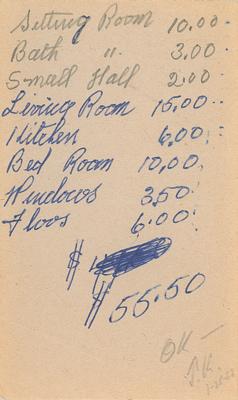 Sitting Room 10.00
Bath " 3.00
Small Hall 2.00
Living Room 15.00
Kitchen 6.00
Bed Room 10.00
Windows 3.50
Floos 6.00
$
$55.50
OK —